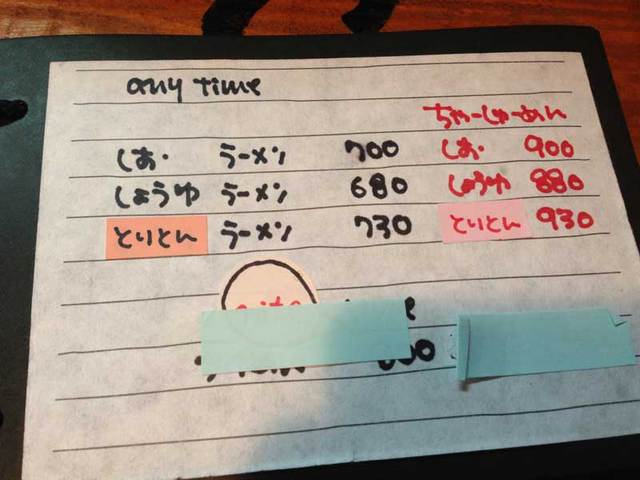 any time
ちゃーしゅーめん
しお・ ラーメン 700 しお・ 900
しょうゆ ラーメン 680 しょうゆ 880
とりとん ラーメン 730 とりとん 930